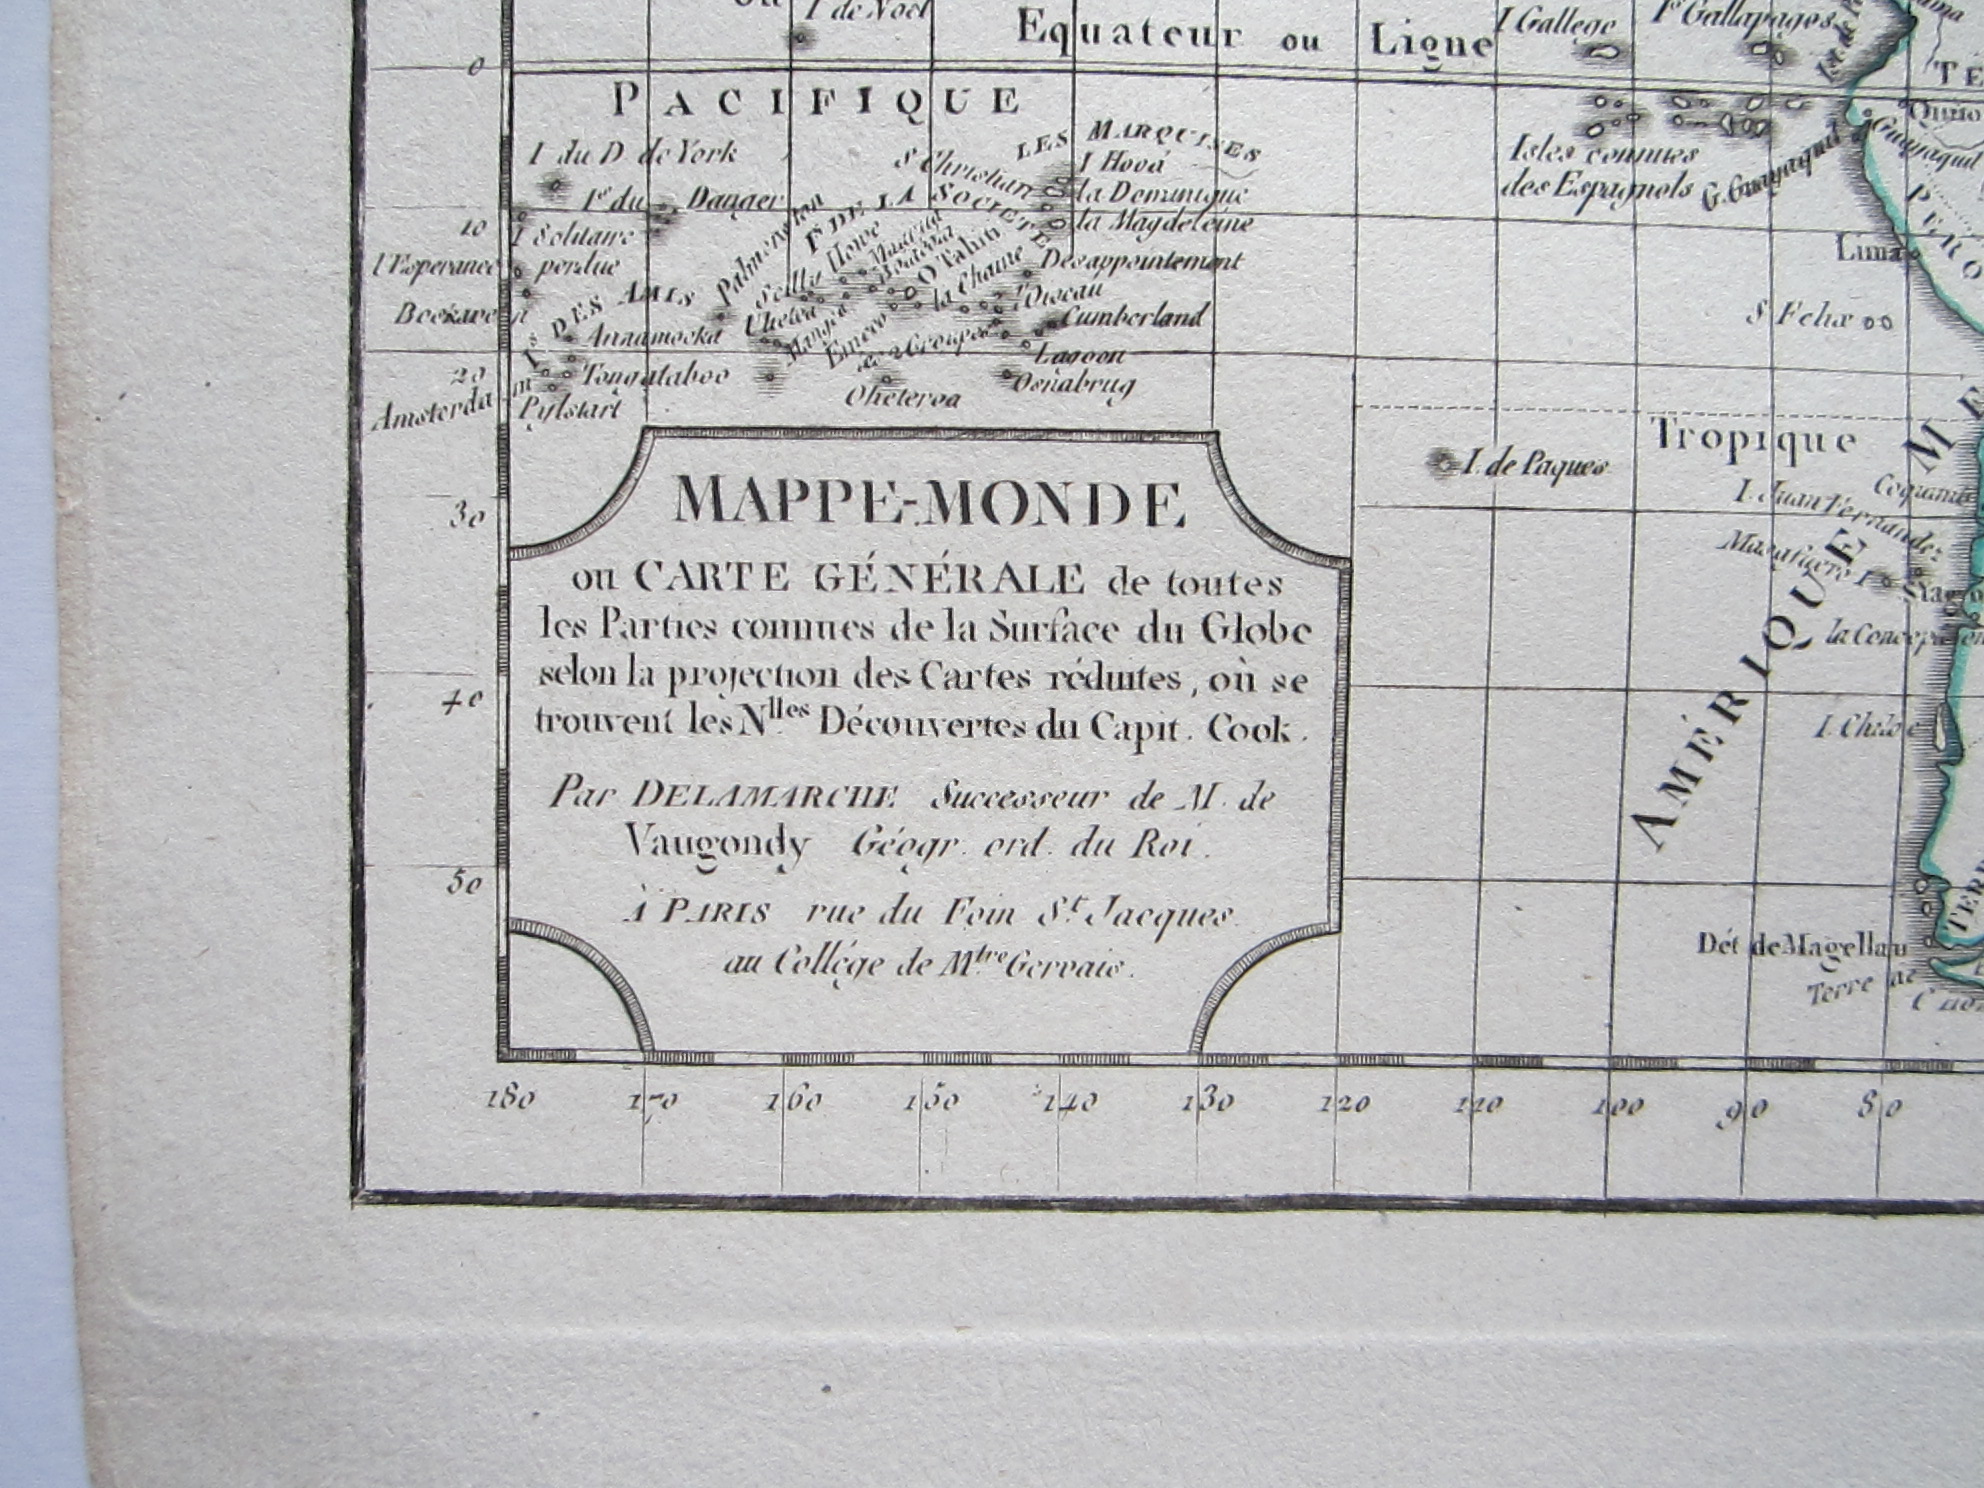 I de Noel
Equateur ou Ligne
I Gallego
Is Gallapagos
0
PACIFIQUE
I du D de York
Is du Danger
LES MARQUISES
St Christian
I Hood
la Dominique
la Magdeleine
Isles connues
des Espagnols
G. Guayaquil
Guayaquil
Quito
PEROU
Lima
10
I Solitaire
perdue
l'Esperance
Is DES AMIS
Palmerston
Is DE LA SOCIETE
Scilly
Howe
O Tahiti
la Chaine
Desappointement
l'Oiseau
Cumberland
Lagoon
Osnabrug
les 2 Groupes
Annamocka
Tongataboo
20
Amsterdam
Pylstart
Oheteroa
S Felix
Tropique
I. de Paques
I. Juan Fernandez
30
AMÉRIQUE ME
la Concepsion
I. Chiloe
40
50
Dét de Magellan
Terre de
MAPPE-MONDE
ou CARTE GÉNÉRALE de toutes
les Parties connues de la Surface du Globe
selon la projection des Cartes réduites, où se
trouvent les Nlles Découvertes du Capit. Cook.
Par DELAMARCHE Successeur de M. de
Vaugondy Géogr. ord. du Roi.
À PARIS rue du Foin St. Jacques
au Collége de Mtre Gervais.
180 170 160 150 140 130 120 110 100 90 80